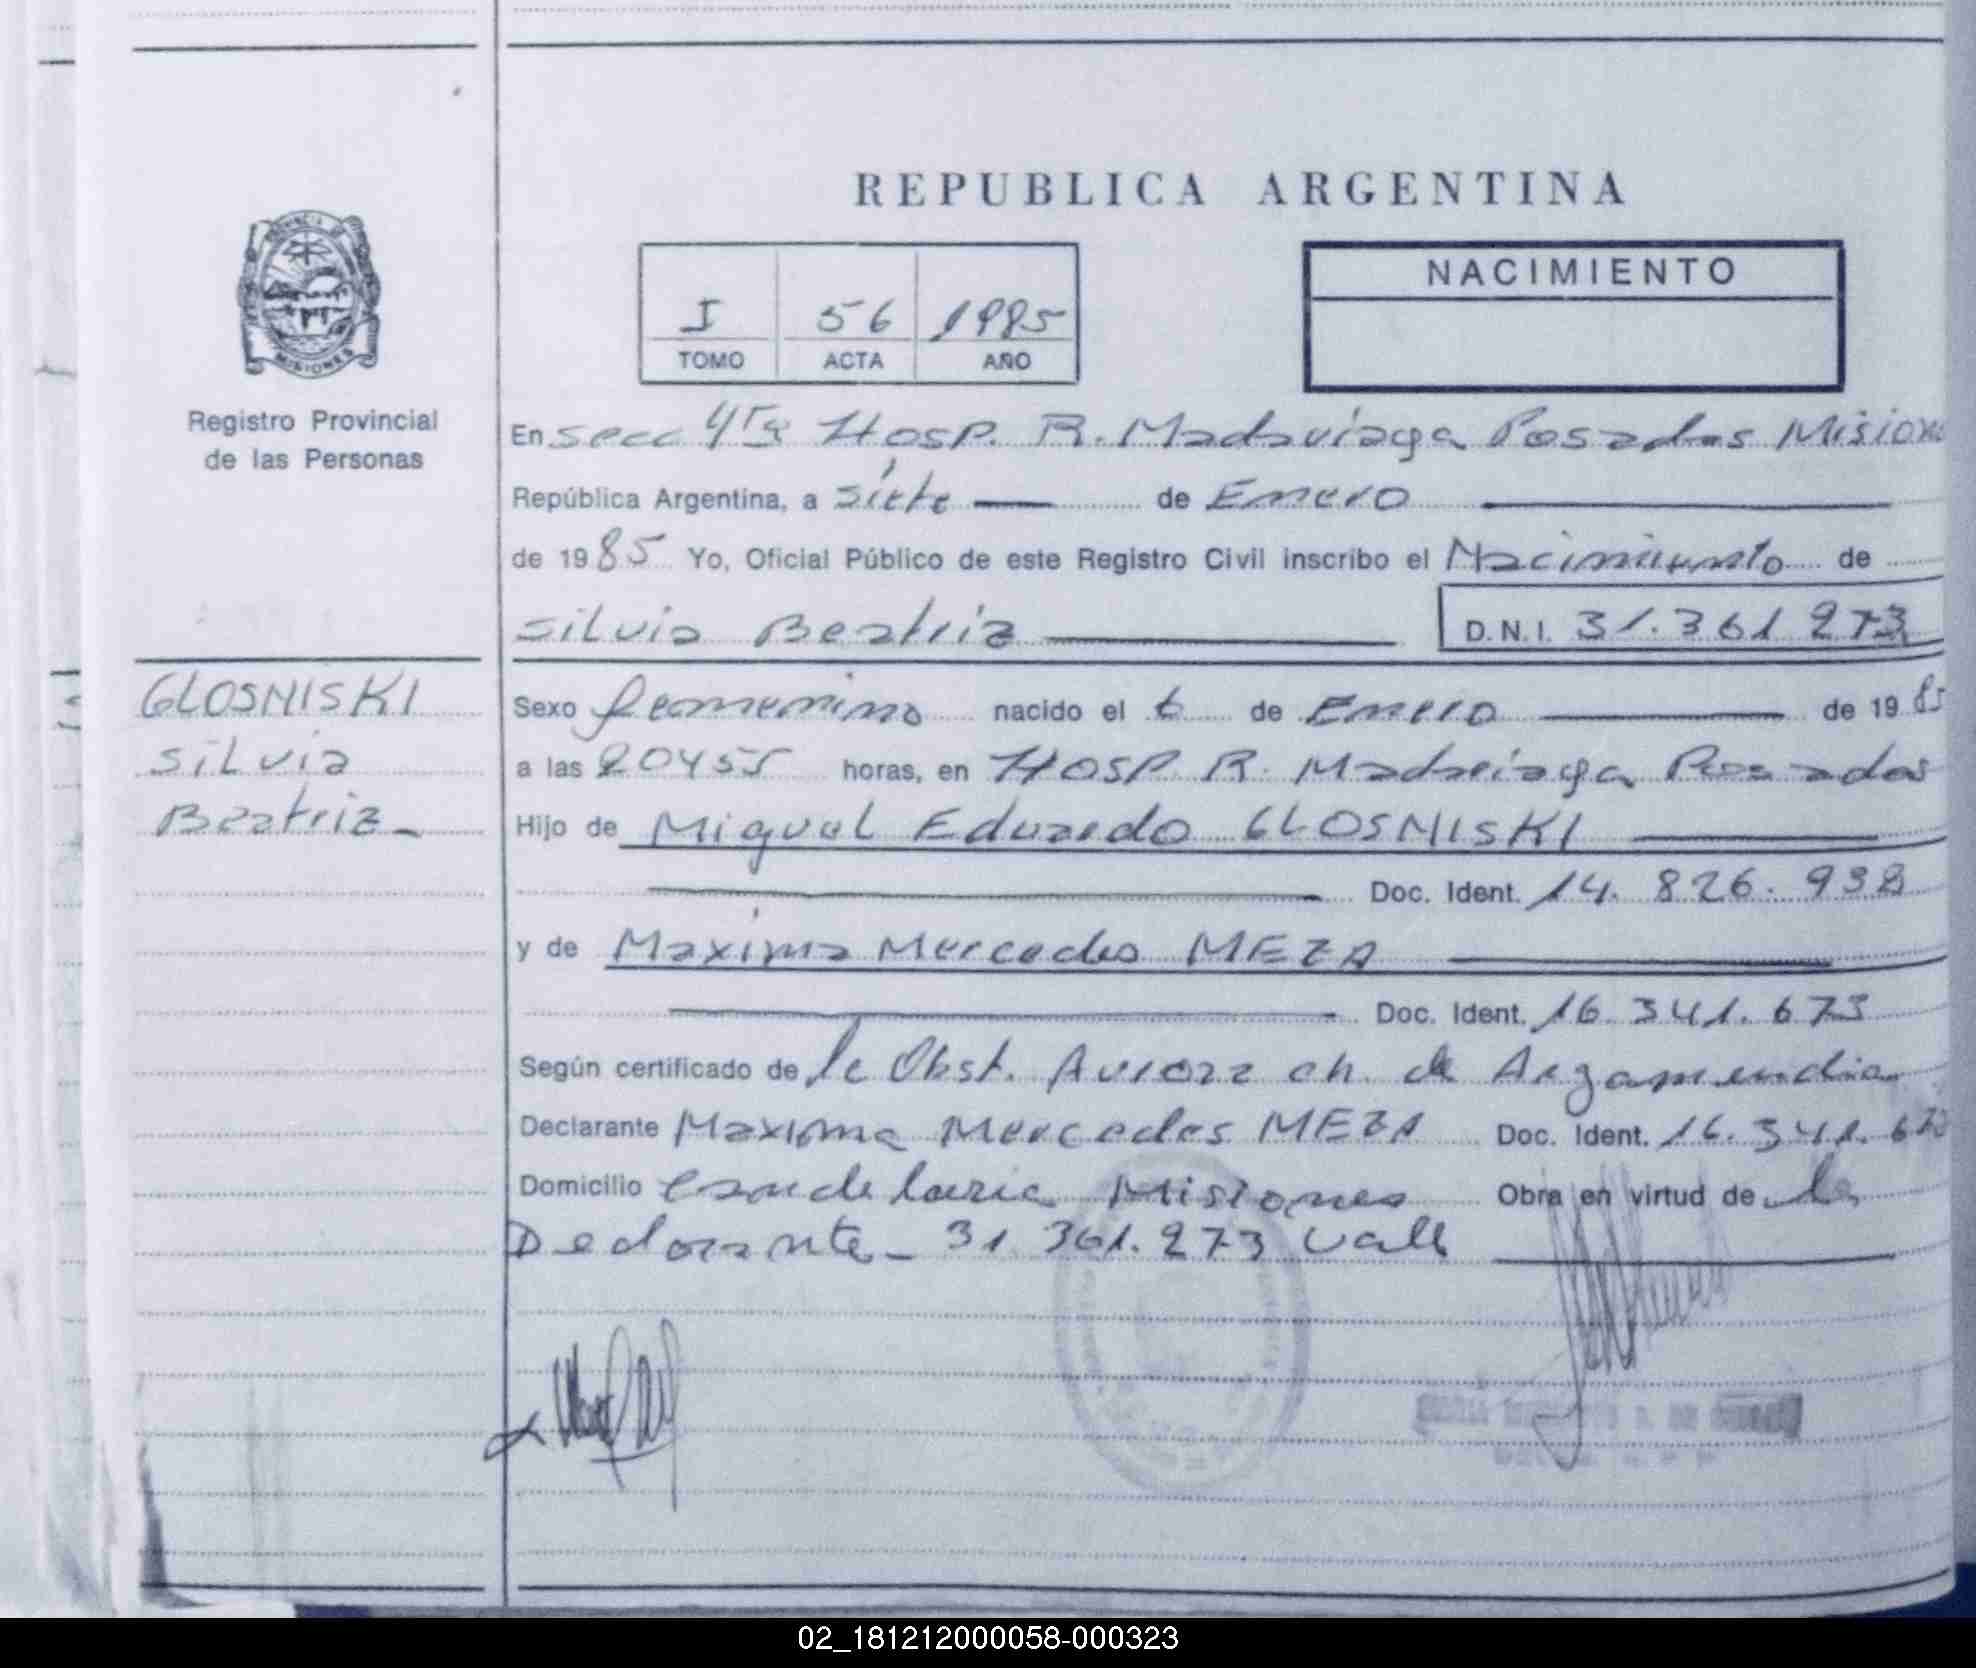 REPUBLICA ARGENTINA
I 56 1985
TOMO ACTA AÑO
NACIMIENTO
Registro Provincial
de las Personas
En secc 4ta Hosp. R. Madariaga Posadas Mision
República Argentina, a siete de Enero
de 1985 Yo, Oficial Público de este Registro Civil inscribo el Nacimiento de
Silvia Beatriz D.N.I. 31.361 273
GLOSNISKI
Silvia
Beatriz
Sexo femenino nacido el 6 de Enero de 1985
a las 20 y 55 horas, en Hosp R. Madariaga Posadas
Hijo de Miguel Eduardo GLOSNISKI
Doc. Ident. 14. 826. 938
y de Maxima Mercedes MEZA
Doc. Ident. 16. 341. 673
Según certificado de la Obst. Aurora ch. de Argamendia
Declarante Maxima Mercedes MEZA Doc. Ident. 16. 341. 673
Domicilio Candelaria Misiones Obra en virtud de la
Declarante - 31 361. 273 Vale
02_181212000058-000323